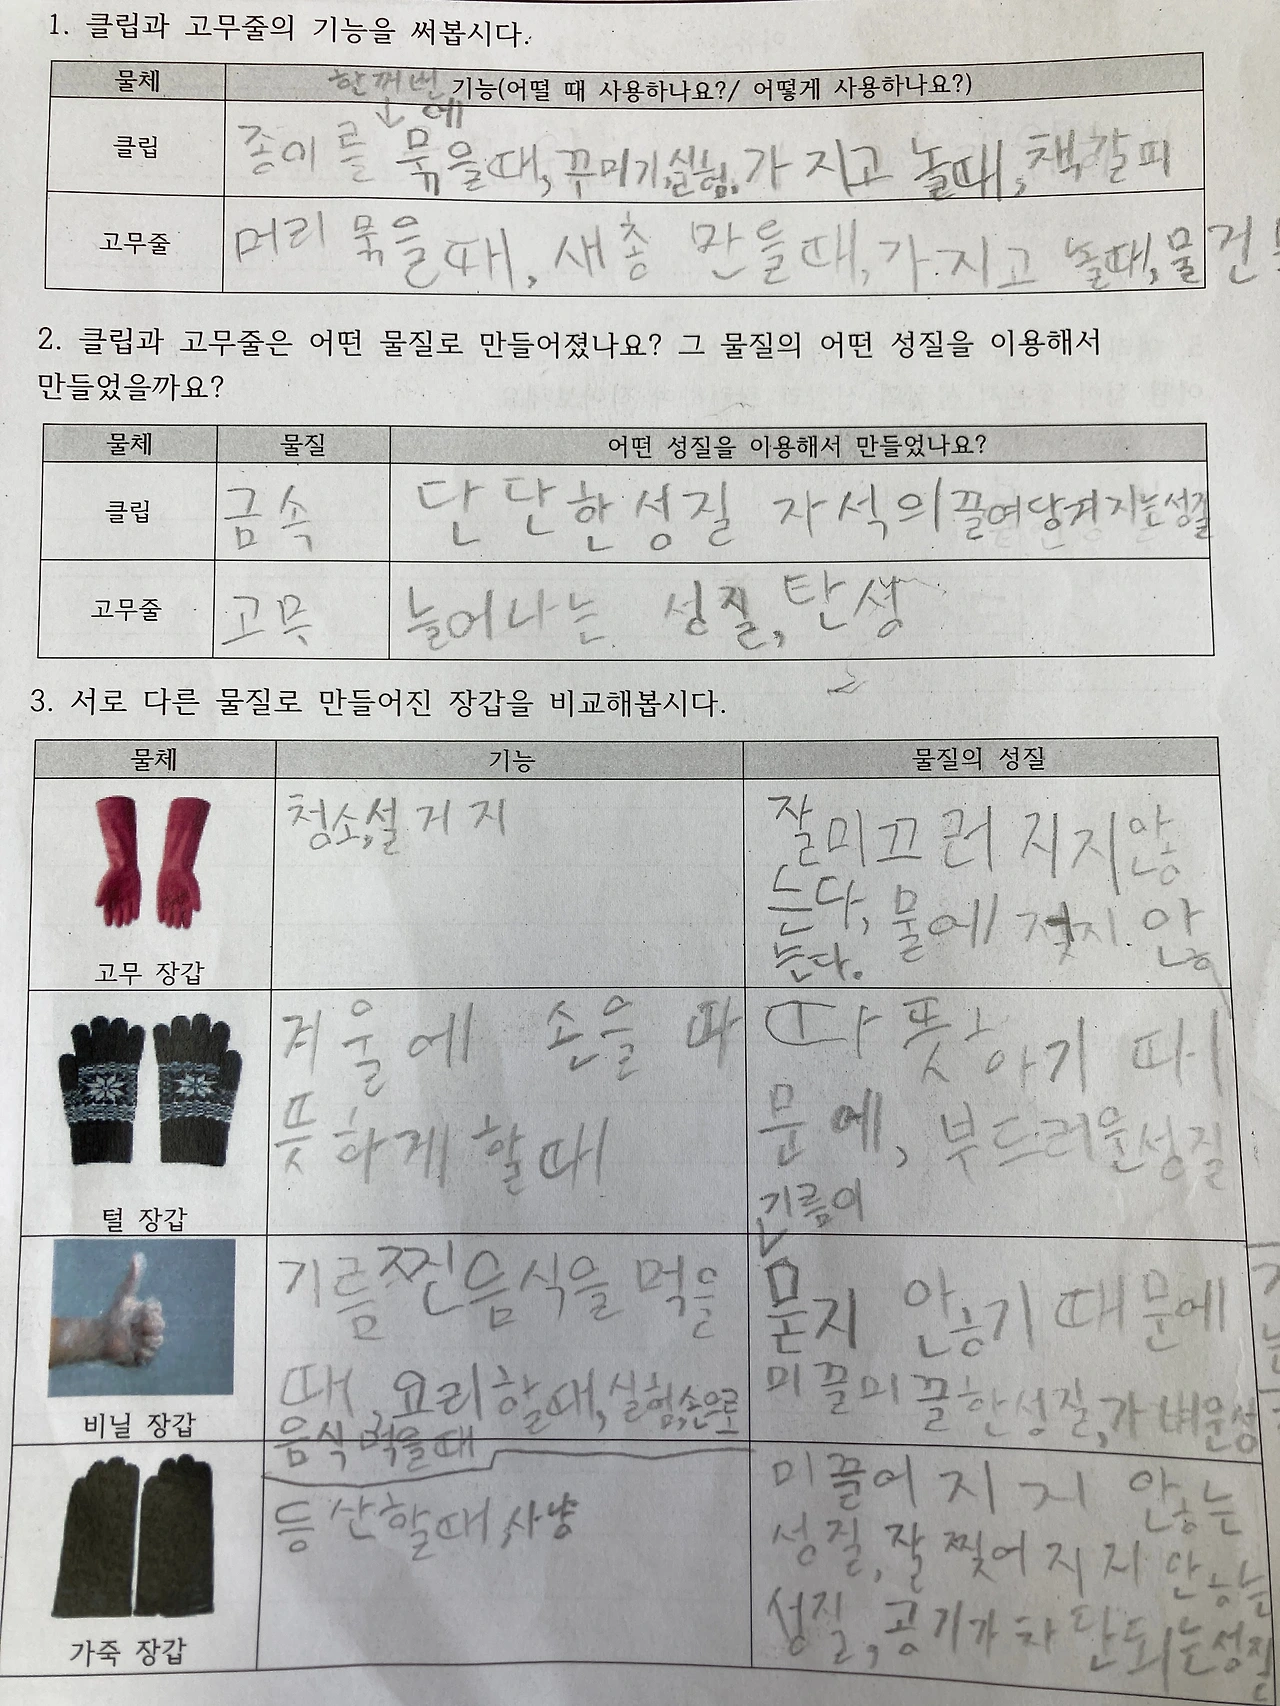 1. 클립과 고무줄의 기능을 써봅시다.
물체
한꺼번에
기능(어떨 때 사용하나요?/ 어떻게 사용하나요?)
클립
종이를 묶을때, 꾸미기, 실험, 가지고 놀때, 책갈피
고무줄
머리 묶을때, 새총 만들때, 가지고 놀때, 물건
2. 클립과 고무줄은 어떤 물질로 만들어졌나요? 그 물질의 어떤 성질을 이용해서
만들었을까요?
물체 물질 어떤 성질을 이용해서 만들었나요?
클립 금속 단단한성질 자석의끌여당겨지는성질
고무줄 고무 늘어나는 성질, 탄성
3. 서로 다른 물질로 만들어진 장갑을 비교해봅시다.
물체 기능 물질의 성질
고무 장갑
청소,설거지
잘미끄러지지않
는다, 물에 젖지 않
는다.
털 장갑
겨울에 손을 따
뜻하게 할때
따뜻하기 때
문에, 부드러운성질
비닐 장갑
기름찐음식을 먹을
때, 요리할때,실험,손으로
음식 먹을때
기름이
묻지 안ㅎ기 때문에
미끌미끌한성질,가벼운성
가죽 장갑
등산할때,사냥
미끌어지지 않는
성질,잘찢어지지 않는
성질,공기가차단되는성질